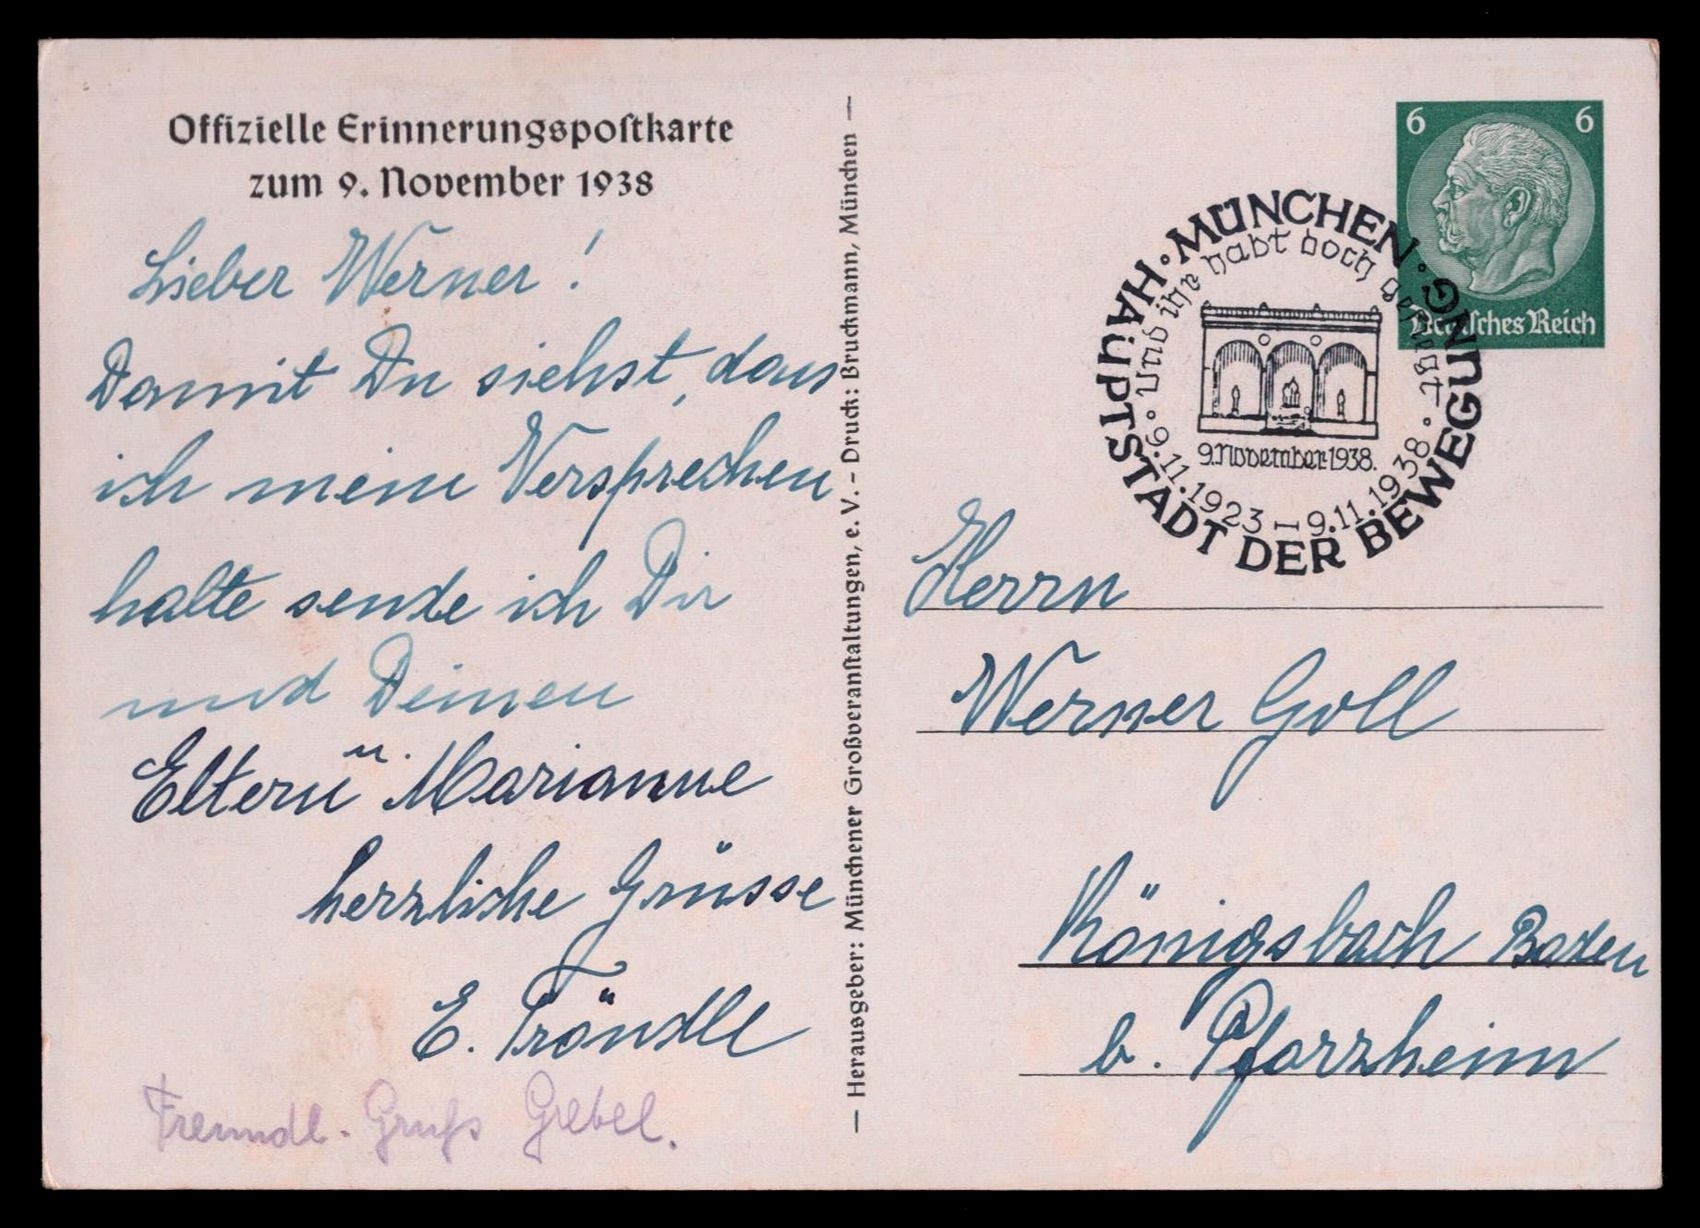 Offizielle Erinnerungspoſtkarte
zum 9. November 1938
Lieber Werner!
Damit Du siehst, dass
ich meine Versprechen
halte sende ich Dir
und Deinen
Eltern u. Marianne
herzliche Grüsse
E. Tröndle
Freundl. Gruß Grebel.
— Herausgeber: Münchener Großveranſtaltungen, e. V. – Druck: Bruckmann, München —
6 6
Deutſches Reich
MÜNCHEN · HAUPTSTADT DER BEWEGUNG ·
Und ihr habt doch geſiegt
9. November 1938.
9.11.1923 – 9.11.1938
Herrn
Werner Goll
Königsbach Baden
b. Pforzheim